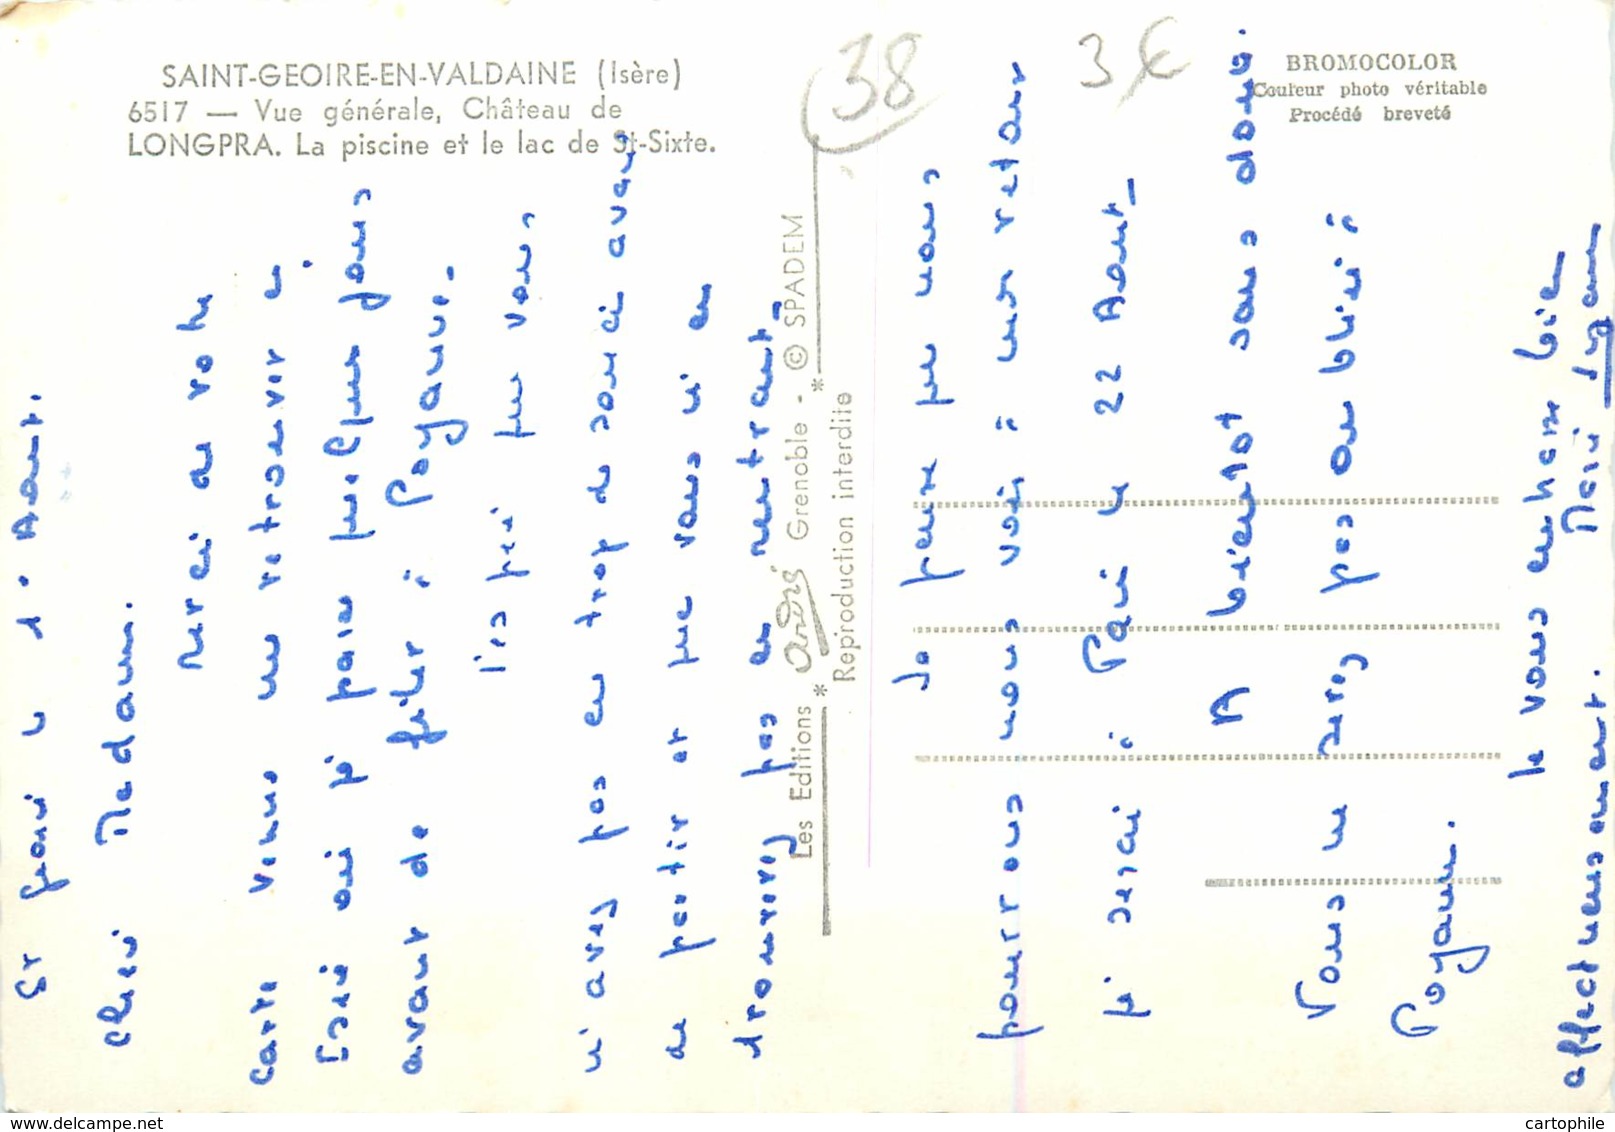 SAINT-GEOIRE-EN-VALDAINE (Isère)
6517 — Vue générale, Château de
LONGPRA. La piscine et le lac de St-Sixte.
38
3 €
BROMOCOLOR
Couleur photo véritable
Procédé breveté
Les Editions * André Grenoble - © SPADEM *
Reproduction interdite
St Geoire le 1° Aout.
Chère Madame.
Merci de votre
carte venue me retrouver en
Isère où je passe quelques jours
avant de filer à Royaume.
que vous
n'avez pas eu trop de souci avant
de partir et que vous n'en
trouverez pas en rentrant_
Je pense que nous
pourrons nous voir à mon retour
je serai à Paris le 22 Aout_
A bientot sans doute.
Vous ne serez pas oubliée à
Royaume.
Je vous embrasse bien
affectueusement.